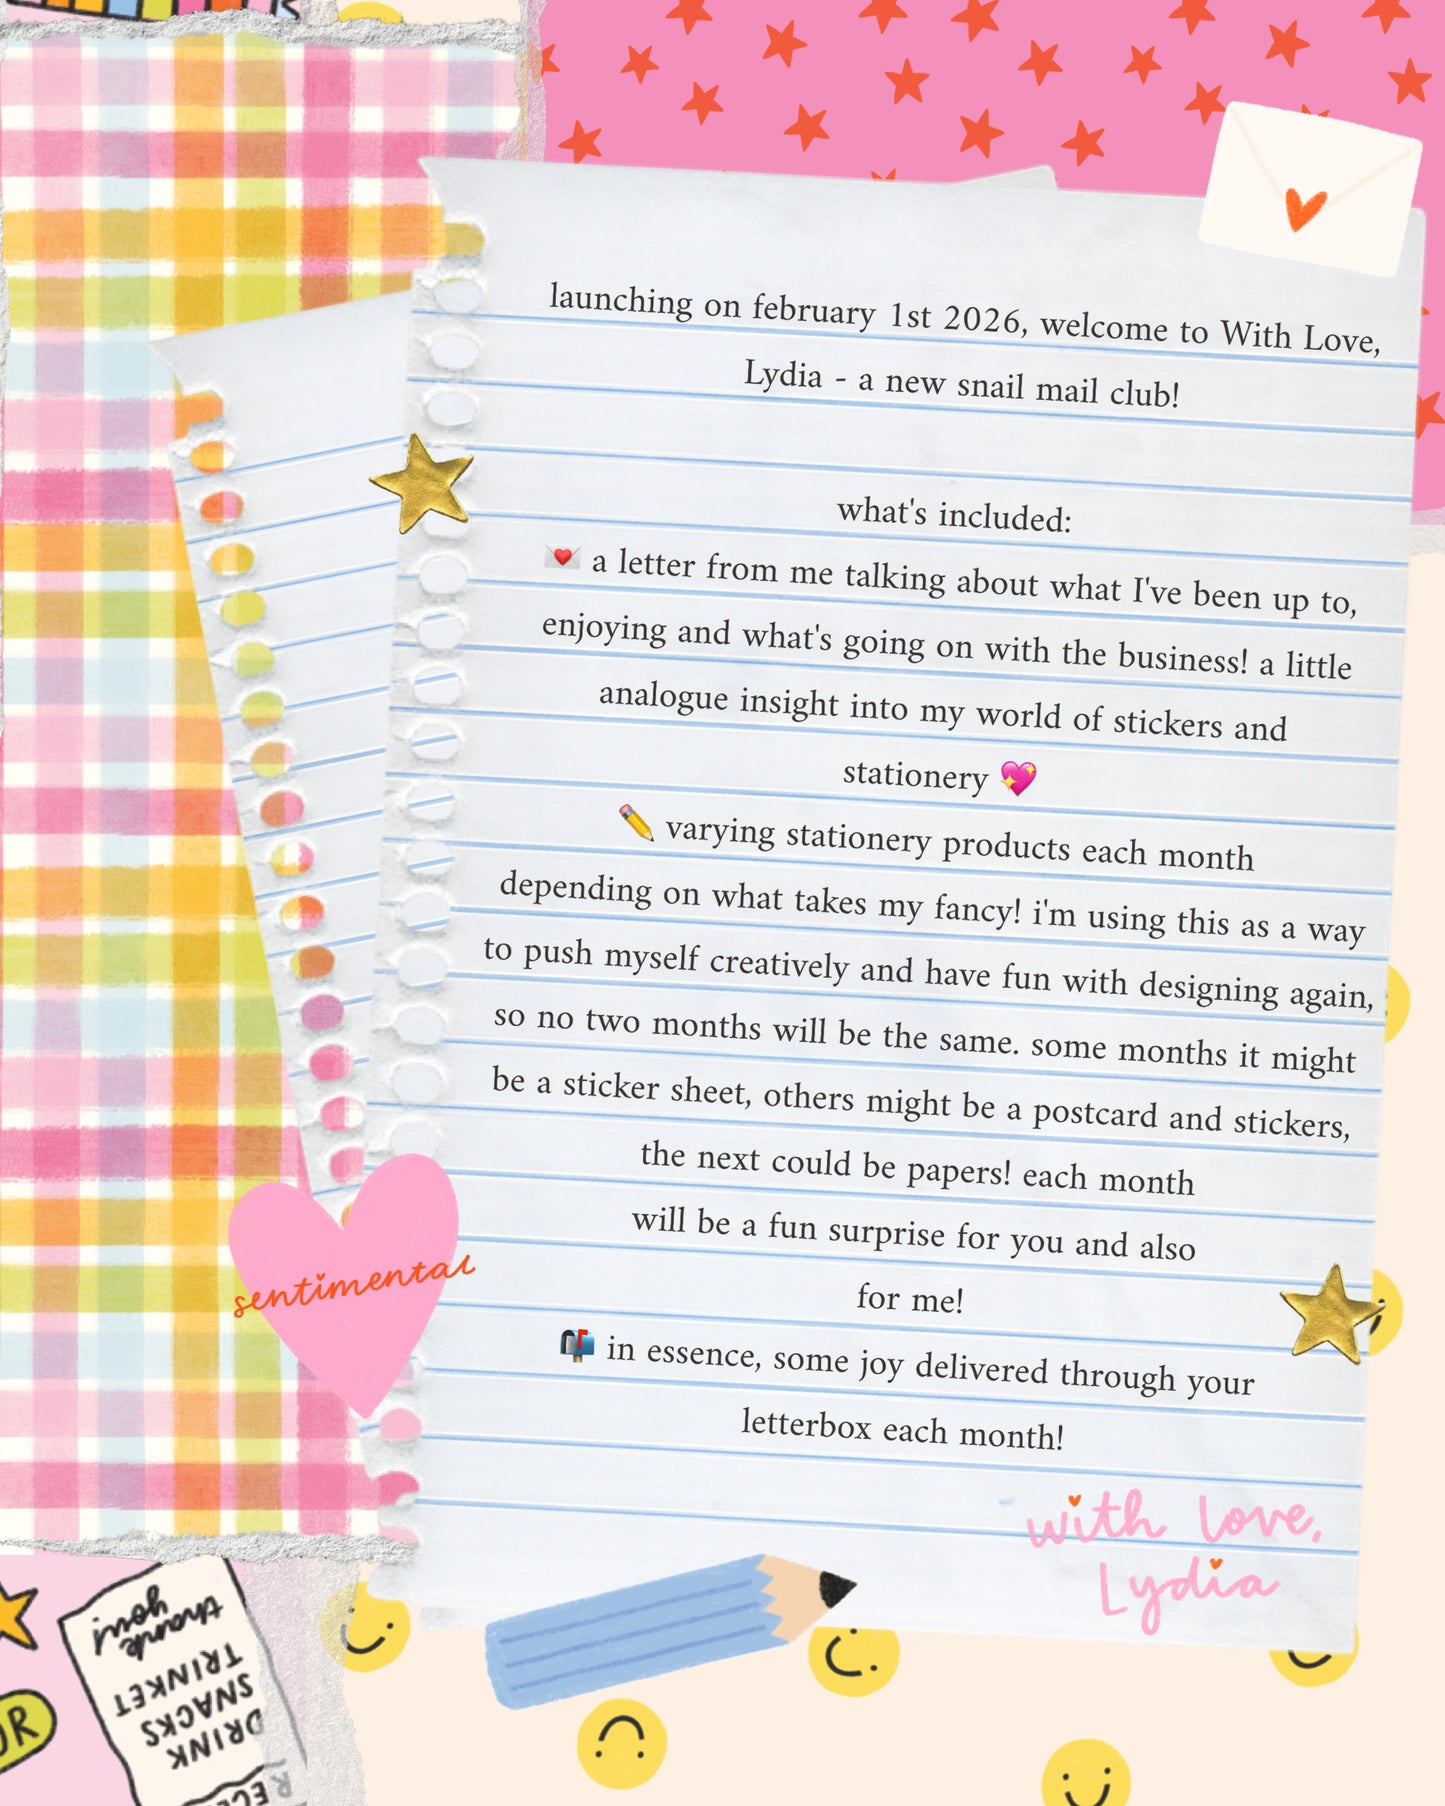 launching on february 1st 2026, welcome to With Love,
Lydia - a new snail mail club!
what's included:
💌 a letter from me talking about what I've been up to,
enjoying and what's going on with the business! a little
analogue insight into my world of stickers and
stationery 💖
✏️ varying stationery products each month
depending on what takes my fancy! i'm using this as a way
to push myself creatively and have fun with designing again,
so no two months will be the same. some months it might
be a sticker sheet, others might be a postcard and stickers,
the next could be papers! each month
will be a fun surprise for you and also
for me!
📬 in essence, some joy delivered through your
letterbox each month!
with love,
Lydia
sentimental
DRINK
SNACKS
TRINKET
thank
you!